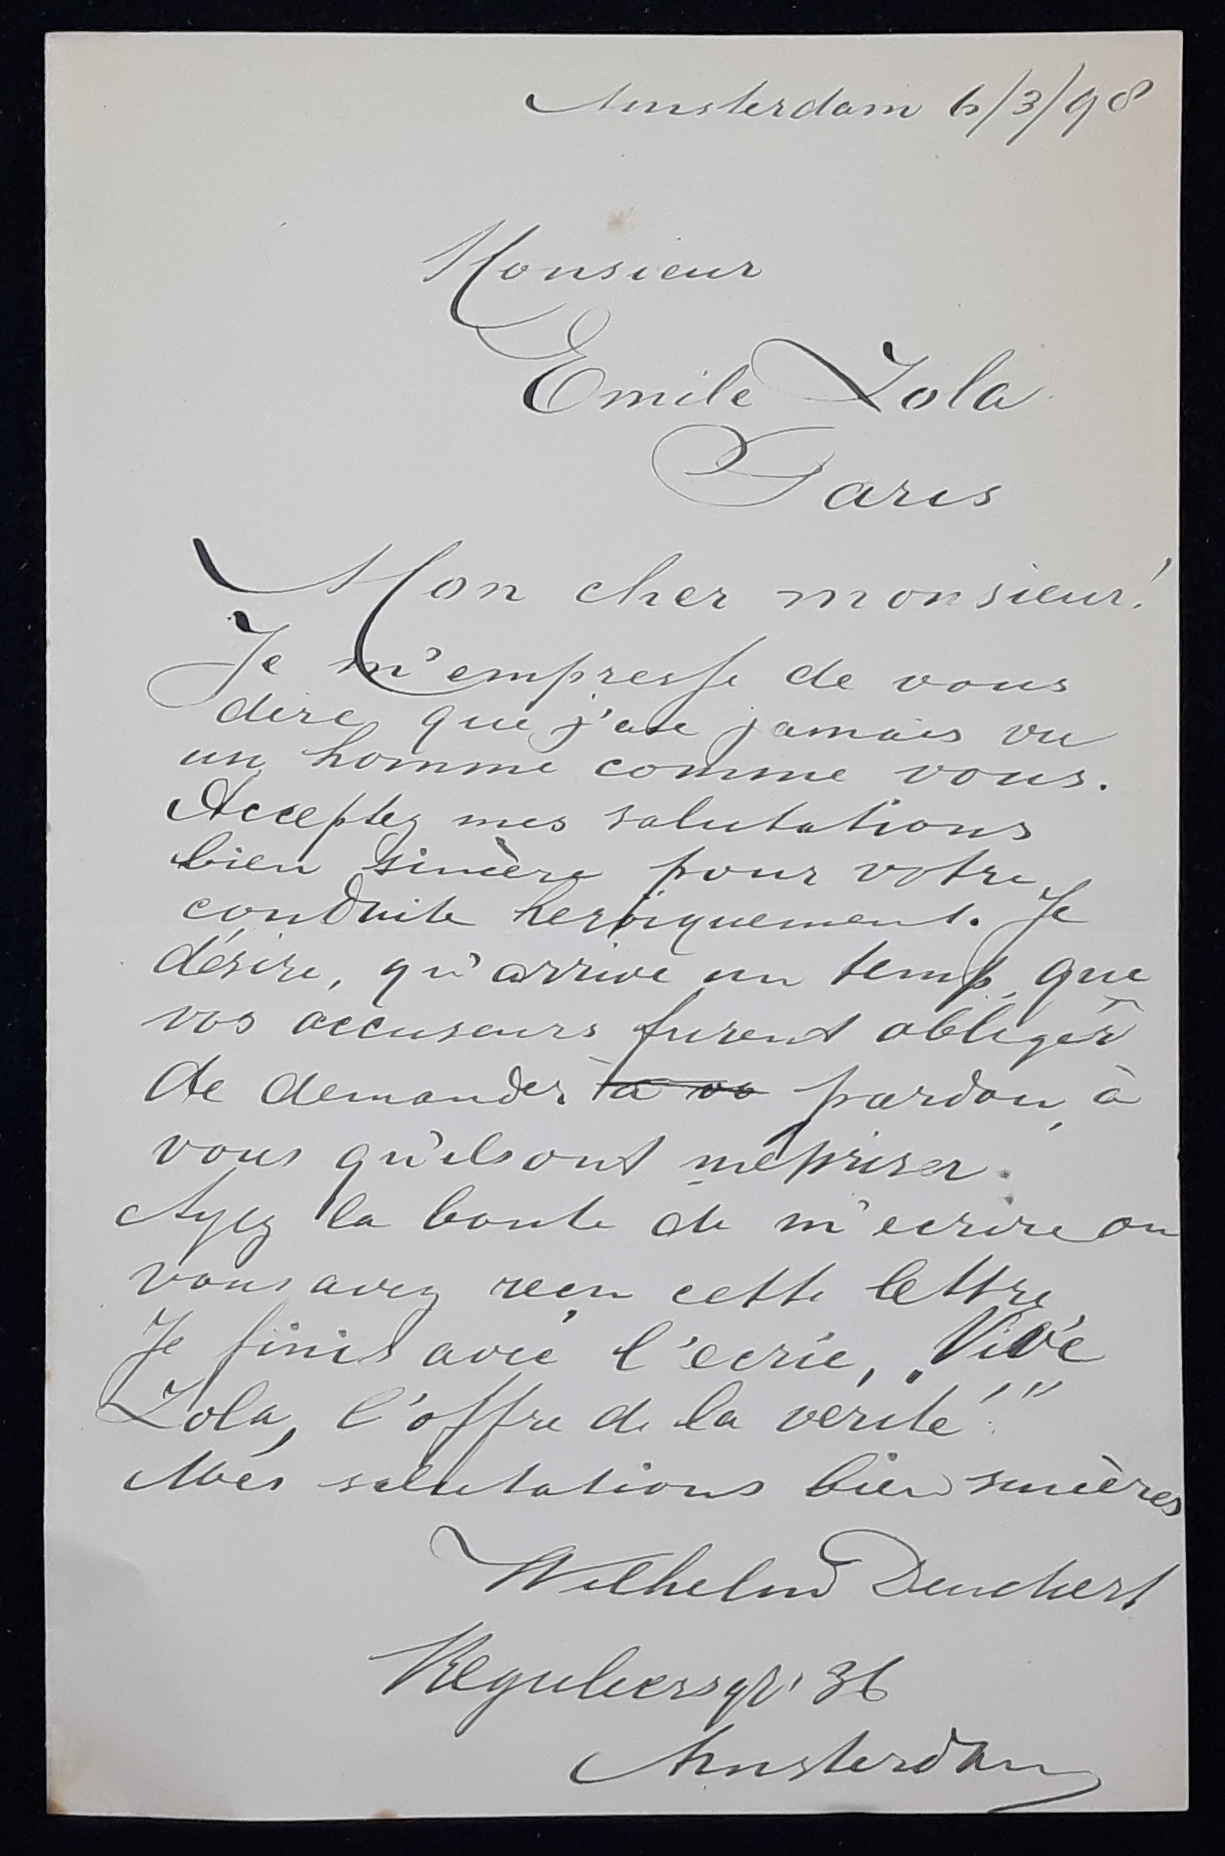 Amsterdam 6/3/98
Monsieur
Emile Zola
Paris
Mon cher monsieur!
Je m'empresse de vous
dire que j'aie jamais vu
un homme comme vous.
Acceptez mes salutations
bien sincère pour votre
conduite heroiquement. Je
désire, qu'arrive un temp, que
vos accuseurs furent obliger
de demander à vo pardon, à
vous qu'ils ont mépriser.
Ayez la bonte de m'ecrire ou
vous avez reçu cette lettre
Je finis avec l'ecrie, „Vive
Zola, l'offre de la verité!"
Mes salutations bien sincères
Wilhelm Deuchert
Reguliersgr. 36
Amsterdam